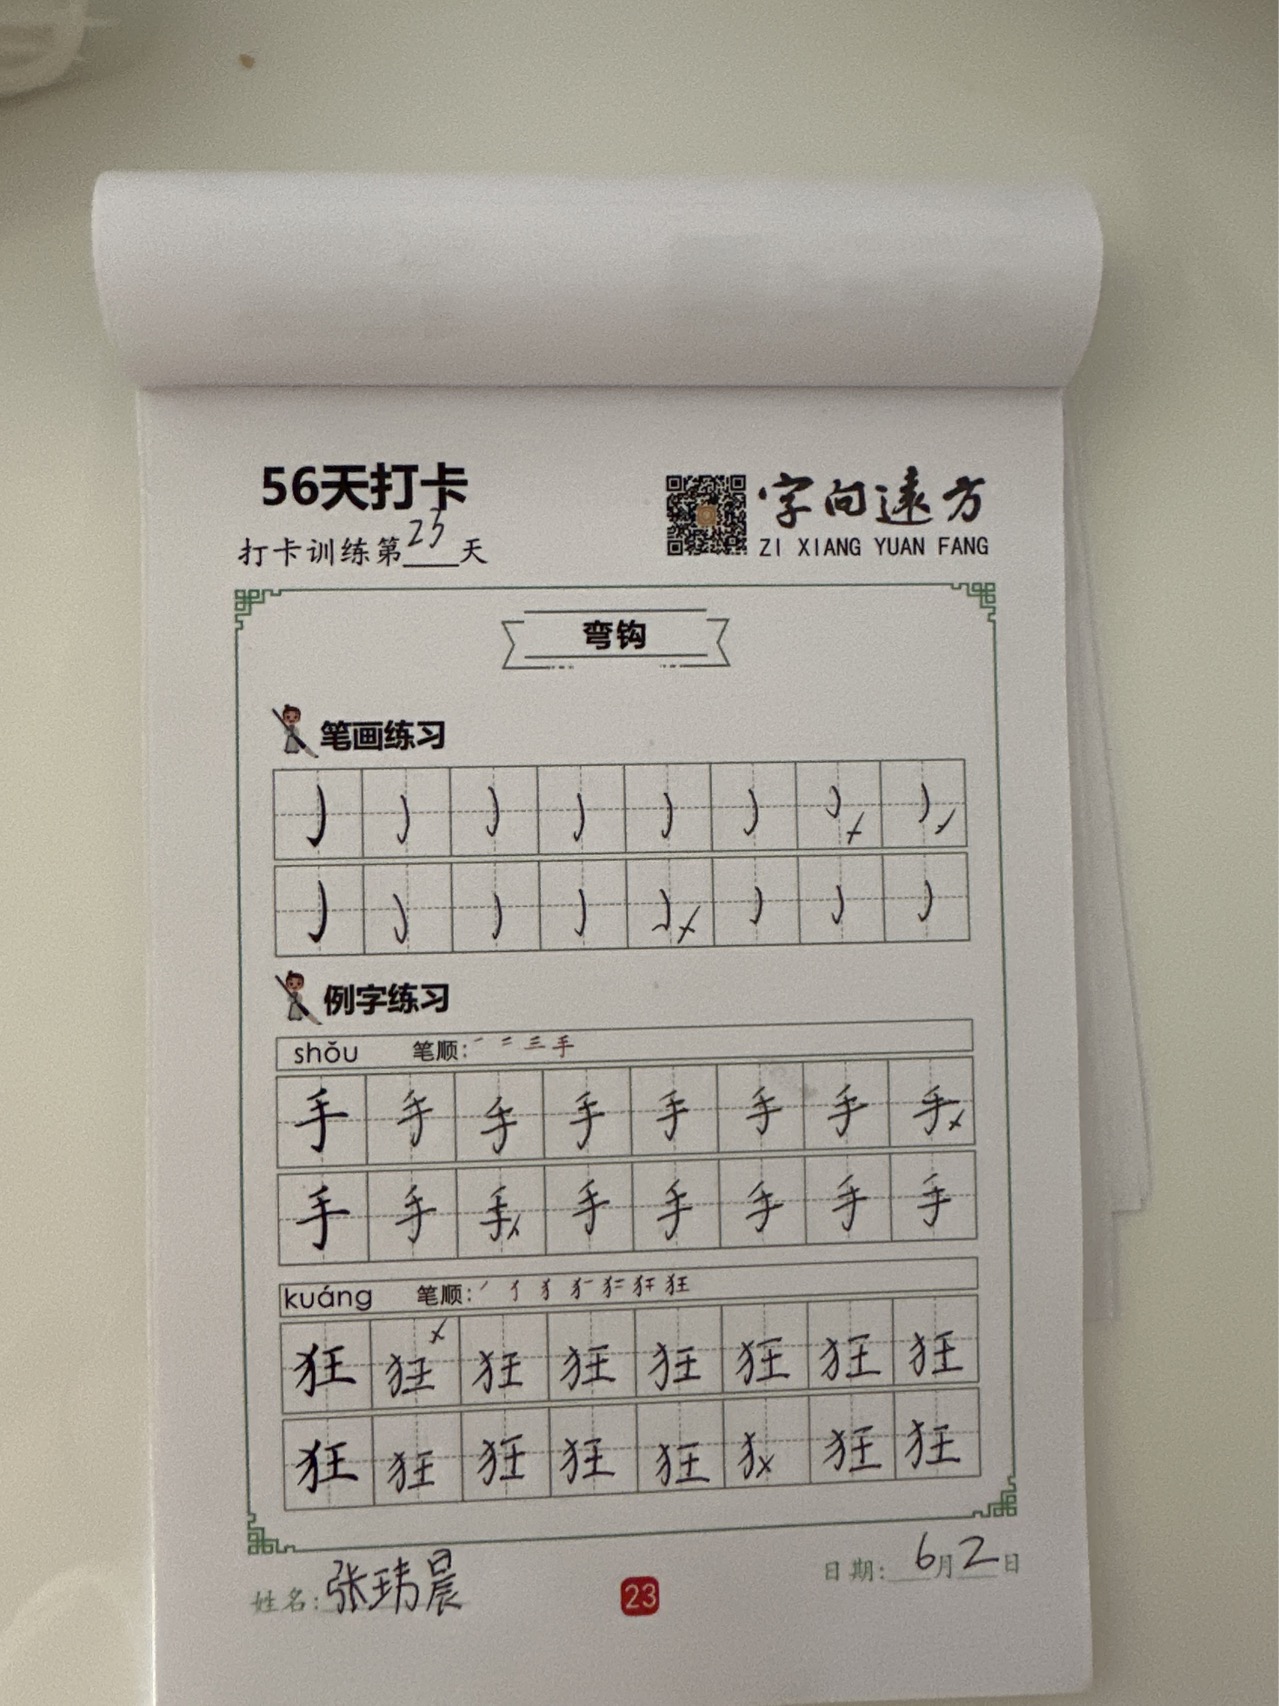 56天打卡
字向遠方
打卡训练第23天
ZI XIANG YUAN FANG
弯钩
笔画练习
例字练习
shǒu 笔顺: 一 二 三 手
手 手 手 手 手 手 手 手
手 手 手 手 手 手 手 手
kuáng 笔顺: 狂
狂 狂 狂 狂 狂 狂 狂 狂
狂 狂 狂 狂 狂 犭 狂 狂
姓名: 张玮晨
23
日期: 6月2日